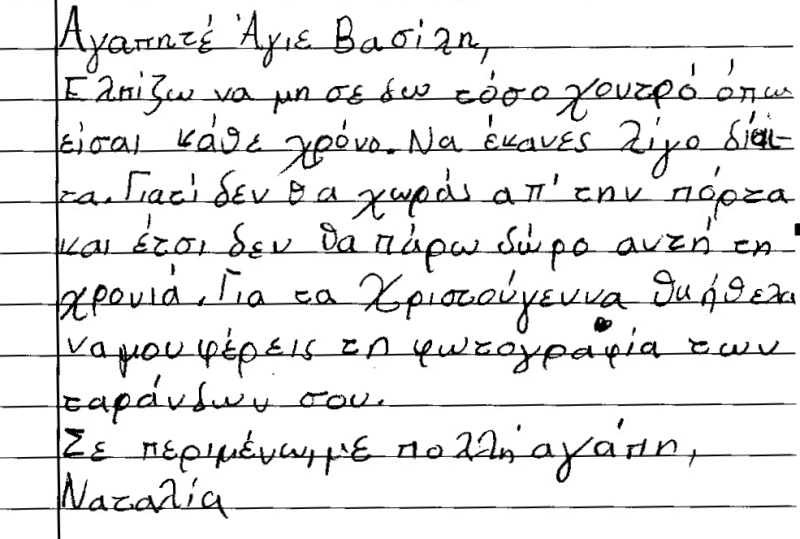 Αγαπητέ Άγιε Βασίλη,
Ελπίζω να μη σε δω τόσο χοντρό όπως
είσαι κάθε χρόνο. Να έκανες λίγο δίαι-
τα. Γιατί δεν θα χωράς απ' την πόρτα
και έτσι δεν θα πάρω δώρο αυτή τη
χρονιά. Για τα Χριστούγεννα θα ήθελα
να μου φέρεις τη φωτογραφία των
ταράνδων σου.
Σε περιμένω, με πολλή αγάπη,
Ναταλία